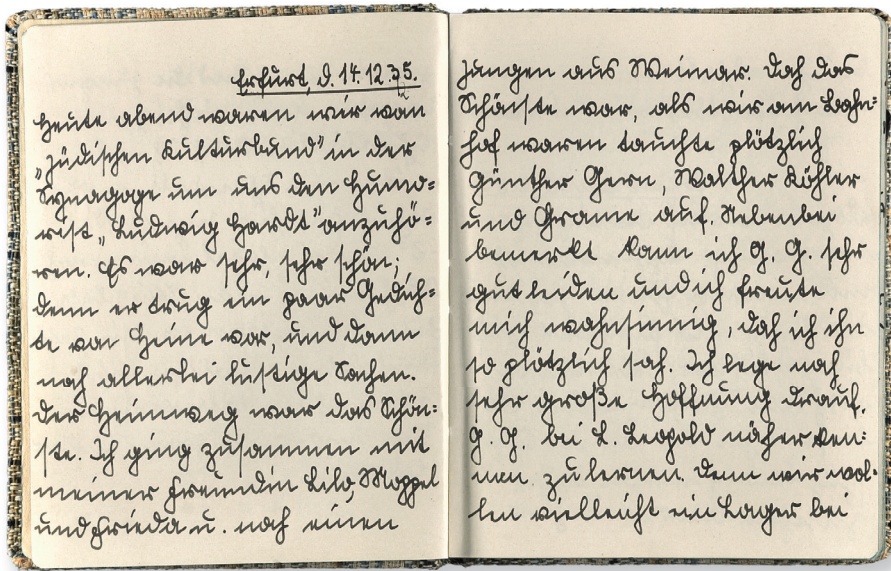 Erfurt, d. 14.12.35.
Heute abend waren wir von
„Jüdischen Kulturbund” in der
Synagoge um uns den Humo=
rist „Ludwig Hardt” anzuhö=
ren. Es war sehr, sehr schön;
denn er trug ein paar Gedich=
te von Heine vor, und dann
noch allerlei lustige Sachen.
Der Heimweg war das Schön=
ste. Ich ging zusammen mit
meiner Freundin Lilo, Moppel
und Frieda u. noch einen
Jungen aus Weimar. Doch das
Schönste war, als wir am Bahn=
hof waren tauchte plötzlich
Günther Gern, Walther Köhler
und auf. Nebenbei
bemerkt kann ich G. G. sehr
gut leiden und ich freute
mich wahnsinnig, daß ich ihn
so plötzlich sah. Ich lege noch
sehr große Hoffnung drauf,
G. G. bei L. Leopold näher ken=
nen zu lernen. Denn wir wol=
len vielleicht ein Lager bei